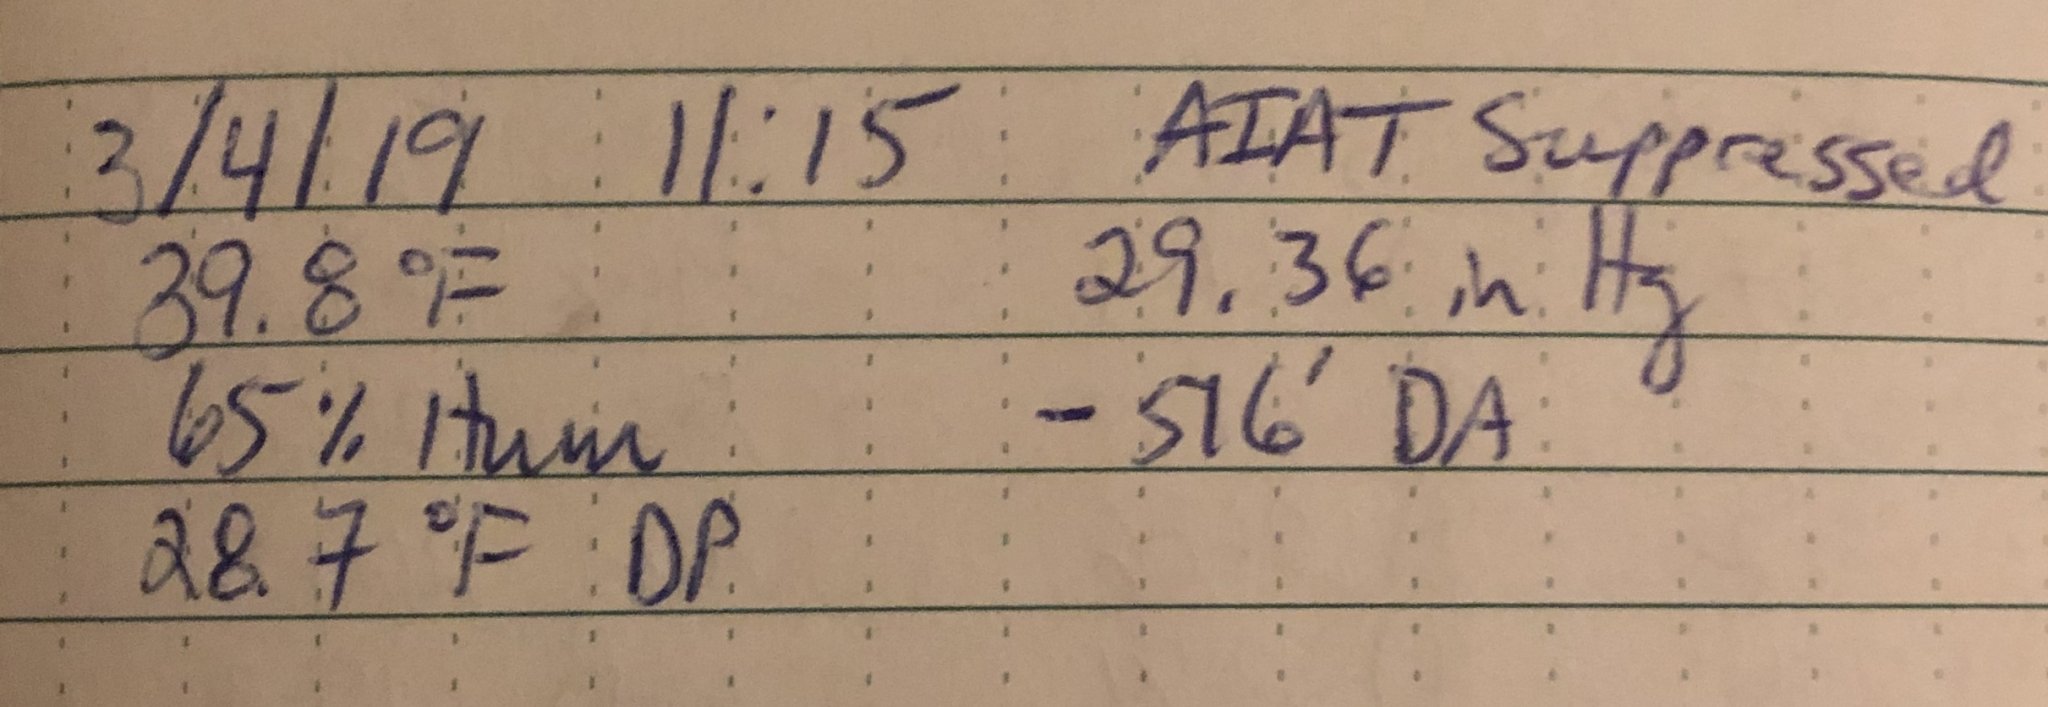 3/4/19 11:15 AIAT Suppressed
39.8 °F 29.36 in Hg
65% Hum -516' DA
28.7 °F DP